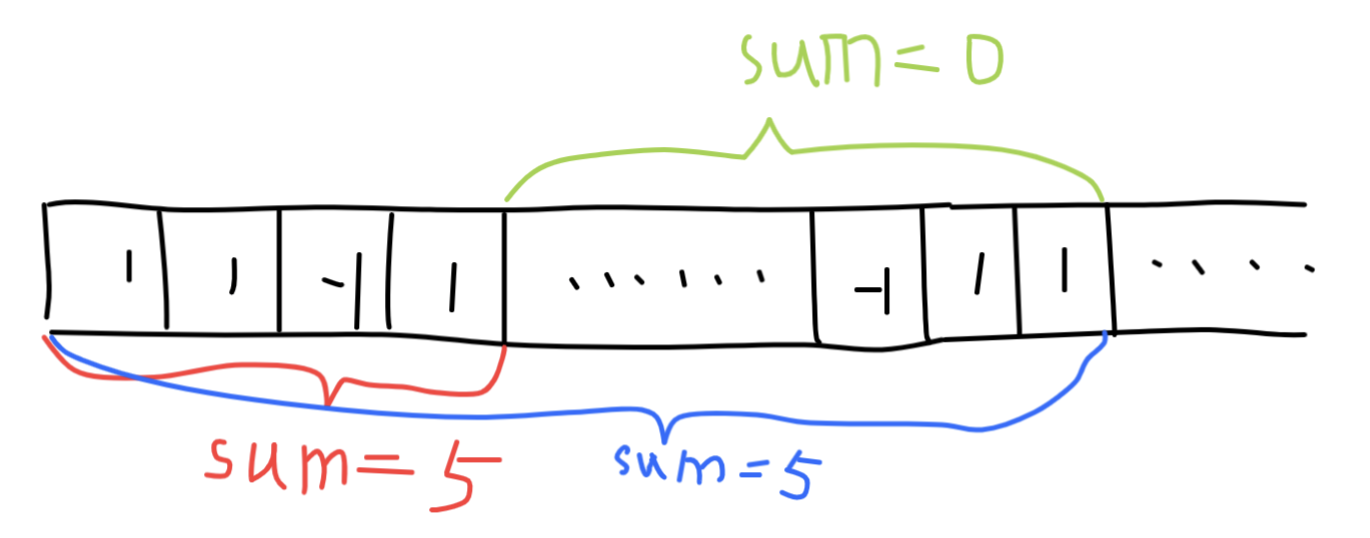 sum=0
1 1 -1 1 ...... -1 1 1 ....
sum=5 sum=5